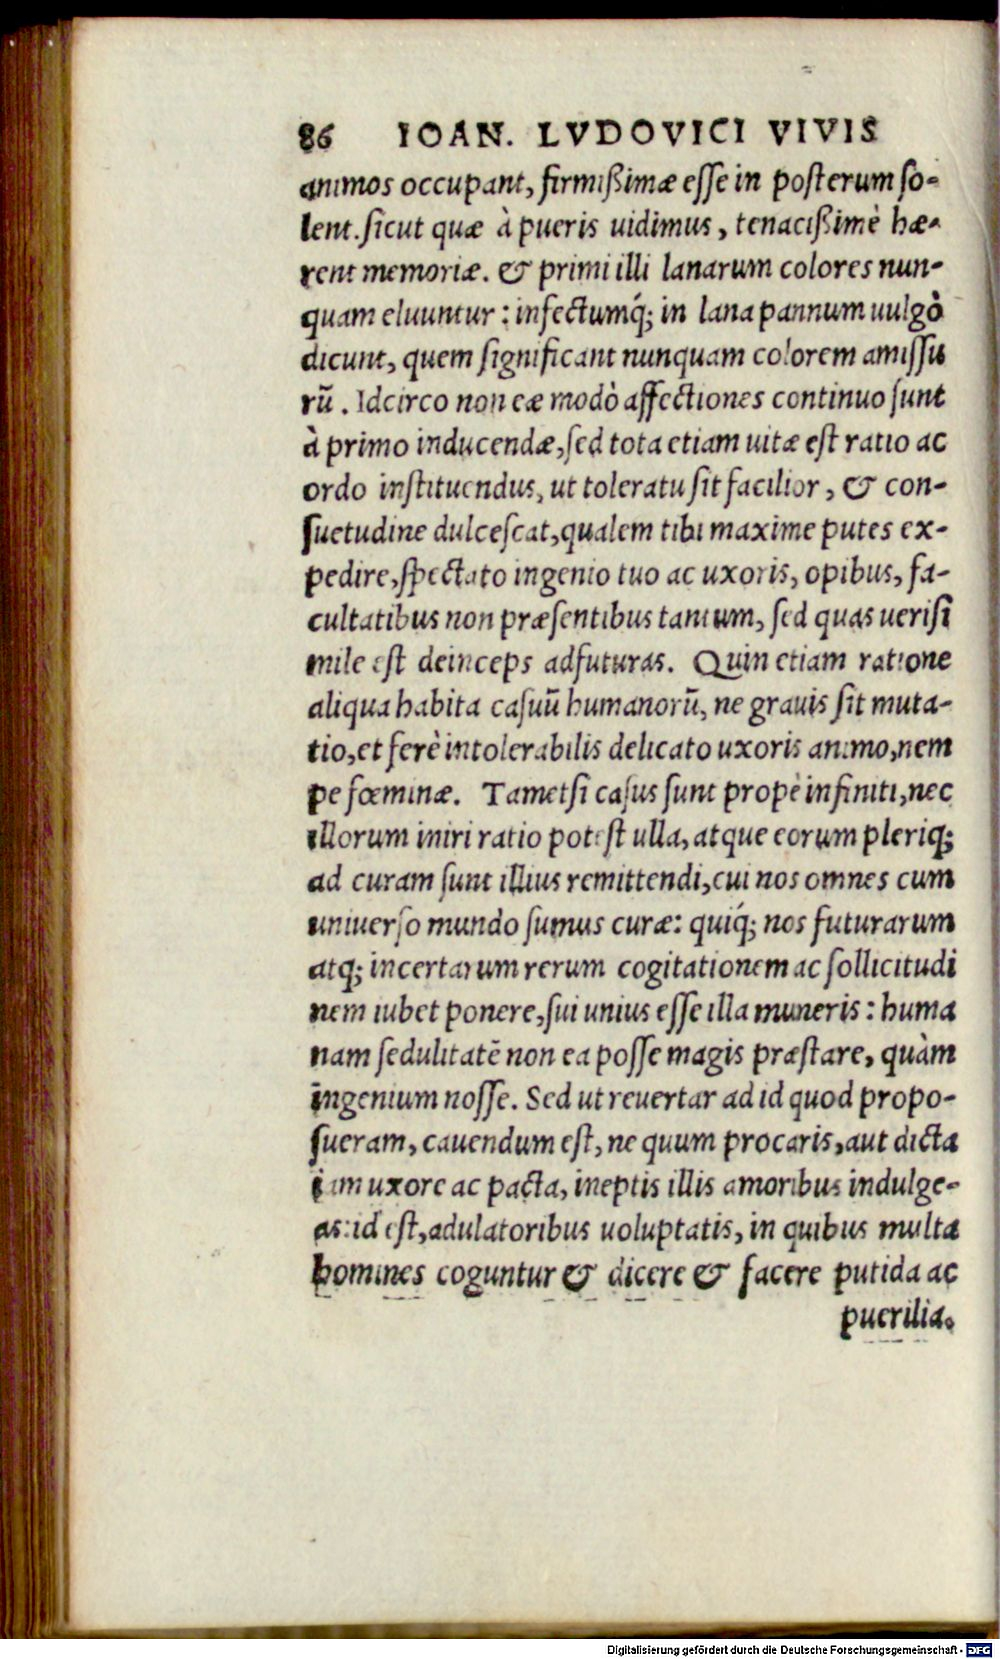 86 IOAN. LVDOVICI VIVIS
animos occupant, firmißimæ esse in posterum so-
lent. sicut quæ à pueris uidimus, tenacißimè hæ-
rent memoriæ. & primi illi lanarum colores nun-
quam eluuntur: infectumq́; in lana pannum uulgò
dicunt, quem significant nunquam colorem amissu
rũ. Idcirco non eæ modò affectiones continuo sunt
à primo inducendæ, sed tota etiam uitæ est ratio ac
ordo instituendus, ut toleratu sit facilior, & con-
suetudine dulcescat, qualem tibi maxime putes ex-
pedire, spectato ingenio tuo ac uxoris, opibus, fa-
cultatibus non præsentibus tantum, sed quas uerisi
mile est deinceps adfuturas. Quin etiam ratione
aliqua habita casuũ humanorũ, ne grauis sit muta-
tio, et ferè intolerabilis delicato uxoris animo, nem
pe fœminæ. Tametsi casus sunt propè infiniti, nec
illorum iniri ratio potest ulla, atque eorum pleriq;
ad curam sunt illius remittendi, cui nos omnes cum
uniuerso mundo sumus curæ: quiq́; nos futurarum
atq; incertarum rerum cogitationem ac sollicitudi
nem iubet ponere, sui unius esse illa muneris: huma
nam sedulitatẽ non ea posse magis præstare, quàm
ingenium nosse. Sed ut reuertar ad id quod propo-
sueram, cauendum est, ne quum procaris, aut dicta
iam uxore ac pacta, ineptis illis amoribus indulge-
as: id est, adulatoribus uoluptatis, in quibus multa
homines coguntur & dicere & facere putida ac
puerilia.
Digitalisierung gefördert durch die Deutsche Forschungsgemeinschaft - DFG